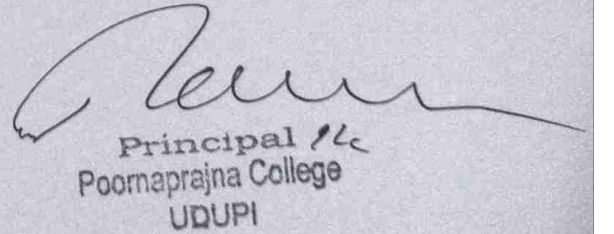 Principal I/c
Poornaprajna College
UDUPI